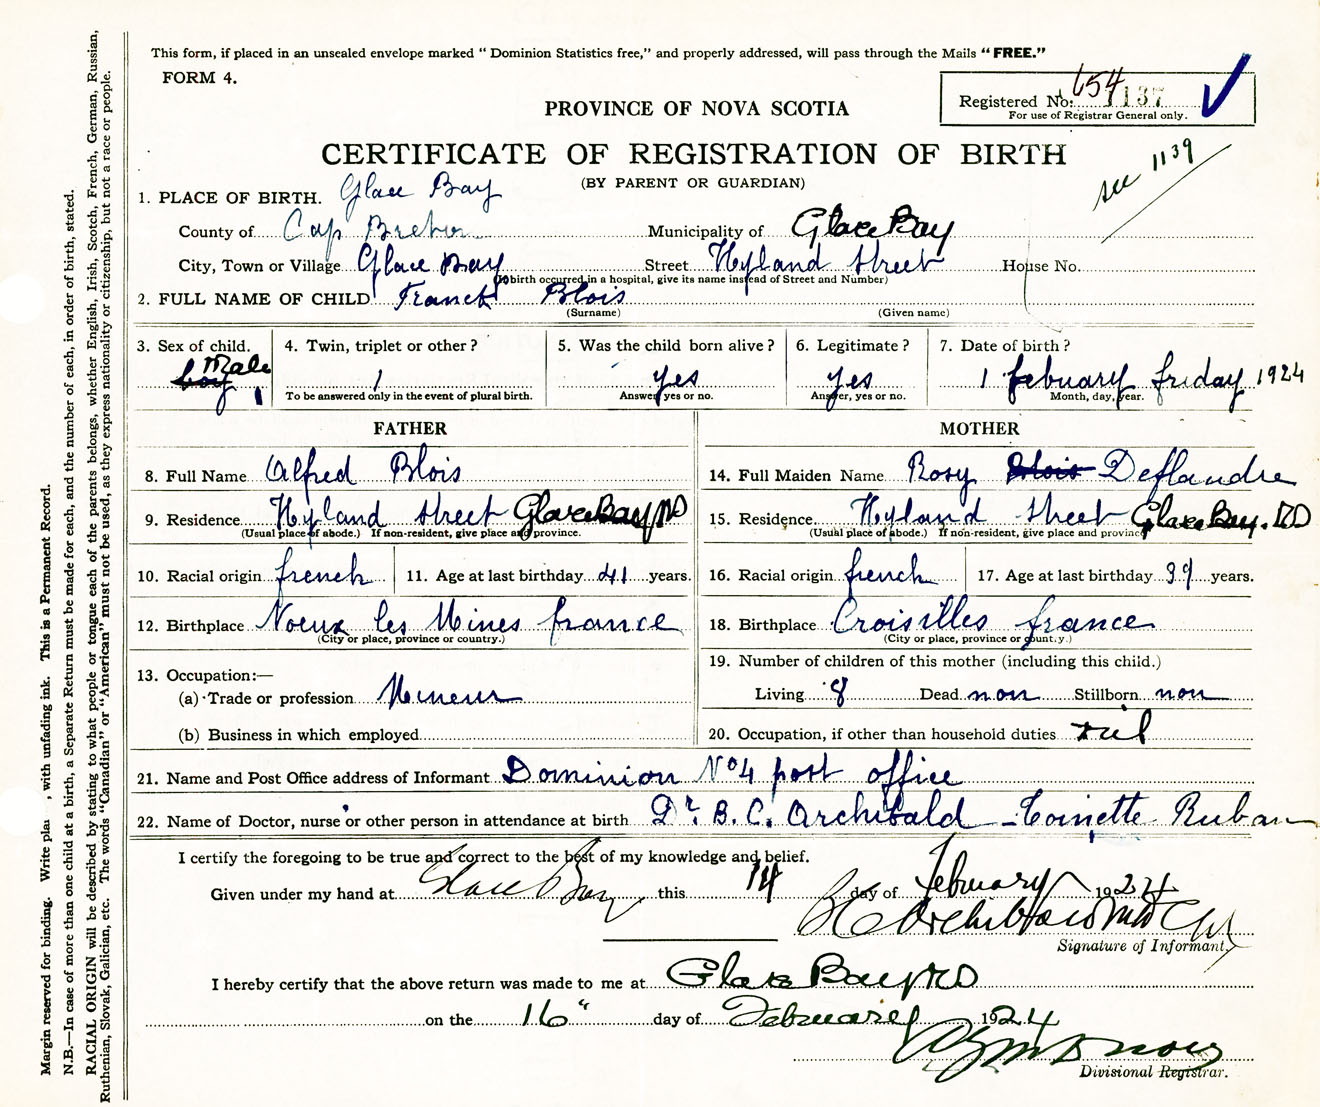 This form, if placed in an unsealed envelope marked “Dominion Statistics free,” and properly addressed, will pass through the Mails “FREE.”
FORM 4.
654
Registered No. 1137
For use of Registrar General only.
PROVINCE OF NOVA SCOTIA
see 1139
CERTIFICATE OF REGISTRATION OF BIRTH
(BY PARENT OR GUARDIAN)
1. PLACE OF BIRTH. Glace Bay
County of Cap Breton Municipality of Glace Bay
City, Town or Village Glace Bay Street Hyland Street House No.
(If birth occurred in a hospital, give its name instead of Street and Number)
2. FULL NAME OF CHILD Franck Blois
(Surname) (Given name)
3. Sex of child. 4. Twin, triplet or other? 5. Was the child born alive? 6. Legitimate? 7. Date of birth?
boy Male 1 1 yes yes 1 febuary friday 1924
To be answered only in the event of plural birth. Answer, yes or no. Answer, yes or no. Month, day, year.
FATHER MOTHER
8. Full Name Alfred Blois 14. Full Maiden Name Rosy Blois Deflandre
9. Residence Hyland Street Glace Bay 15. Residence Hyland Street Glace Bay
(Usual place of abode.) If non-resident, give place and province. (Usual place of abode.) If non-resident, give place and province
10. Racial origin french 11. Age at last birthday 41 years. 16. Racial origin french 17. Age at last birthday 39 years.
12. Birthplace Noeux les Mines france 18. Birthplace Croisilles france
(City or place, province or country.) (City or place, province or country.)
19. Number of children of this mother (including this child.)
13. Occupation:—
(a) Trade or profession Mineur Living 8 Dead non Stillborn non
(b) Business in which employed 20. Occupation, if other than household duties nil
21. Name and Post Office address of Informant Dominion No 4 post office
22. Name of Doctor, nurse or other person in attendance at birth Dr. B. C. Archibald - Toinette Ruban
I certify the foregoing to be true and correct to the best of my knowledge and belief.
Given under my hand at Glace Bay this 14 day of February 1924
B C Archibald MD CM
Signature of Informant
I hereby certify that the above return was made to me at Glace Bay
on the 16" day of February 1924
Divisional Registrar.
Margin reserved for binding. Write plai , with unfading ink. This is a Permanent Record.
N.B.—In case of more than one child at a birth, a Separate Return must be made for each, and the number of each, in order of birth, stated.
RACIAL ORIGIN will be described by stating to what people or tongue each of the parents belongs, whether English, Irish, Scotch, French, German, Russian,
Ruthenian, Slovak, Galician, etc. The words “Canadian” or “American” must not be used, as they express nationality or citizenship, but not a race or people.